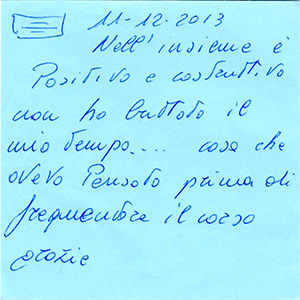 11-12-2013
Nell'insieme è
Positivo e costruttivo
non ho buttato il
mio tempo.... cosa che
avevo Pensato prima di
frequentare il corso
grazie